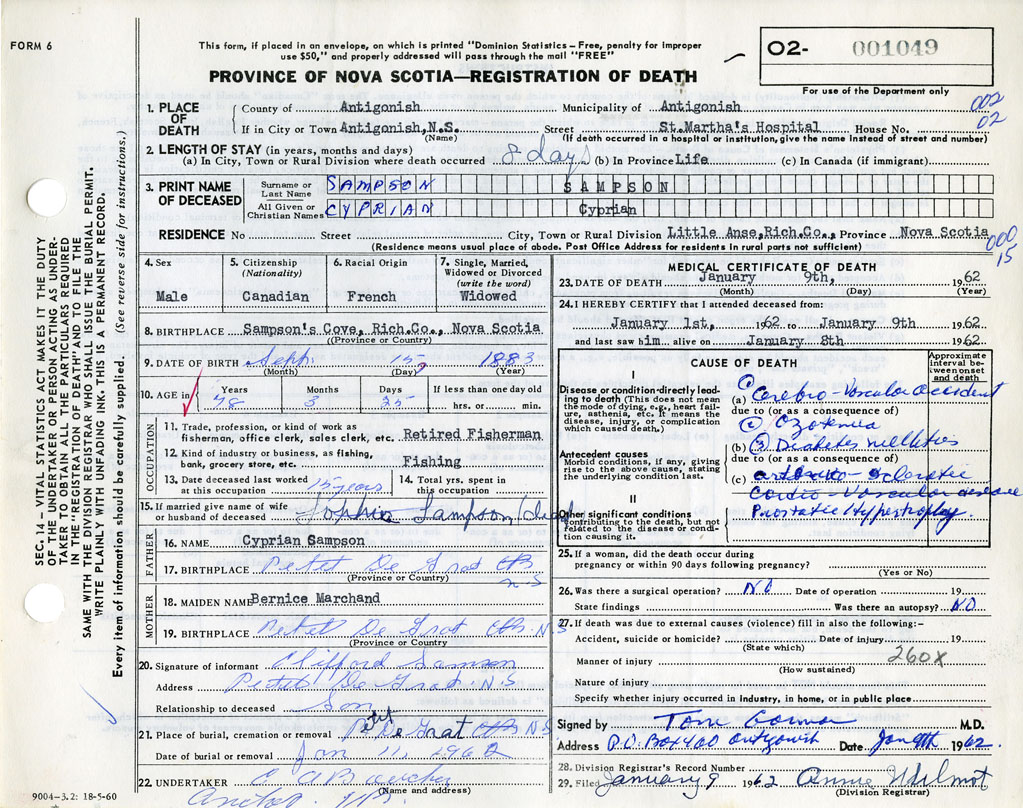 FORM 6
This form, if placed in an envelope, on which is printed "Dominion Statistics – Free, penalty for improper
use $50," and properly addressed will pass through the mail "FREE"
O2- 001049
For use of the Department only
PROVINCE OF NOVA SCOTIA—REGISTRATION OF DEATH
002
02
1. PLACE OF DEATH
County of Antigonish Municipality of Antigonish
If in City or Town Antigonish, N.S. Street St. Martha's Hospital House No.
(Name) (If death occurred in a hospital or institution, give name instead of street and number)
2. LENGTH OF STAY (in years, months and days)
(a) In City, Town or Rural Division where death occurred 8 days (b) In Province Life (c) In Canada (if immigrant)
3. PRINT NAME OF DECEASED
Surname or Last Name SAMPSON SAMPSON
All Given or Christian Names CYPRIAN Cyprian
RESIDENCE No Street City, Town or Rural Division Little Anse, Rich.Co., Province Nova Scotia
(Residence means usual place of abode. Post Office Address for residents in rural parts not sufficient)
000
15
4. Sex
Male
5. Citizenship
(Nationality)
Canadian
6. Racial Origin
French
7. Single, Married, Widowed or Divorced
(write the word)
Widowed
8. BIRTHPLACE Sampson's Cove, Rich.Co., Nova Scotia
(Province or Country)
9. DATE OF BIRTH Sept. 15, 1883
(Month) (Day) (Year)
10. AGE in Years Months Days If less than one day old
78 3 25 hrs. or min.
OCCUPATION
11. Trade, profession, or kind of work as
fisherman, office clerk, sales clerk, etc. Retired Fisherman
12. Kind of industry or business, as fishing,
bank, grocery store, etc. Fishing
13. Date deceased last worked at this occupation 15 years
14. Total yrs. spent in this occupation
15. If married give name of wife
or husband of deceased Sophie Sampson
FATHER
16. NAME Cyprian Sampson
17. BIRTHPLACE Petet De Grat CB N.S
(Province or Country)
MOTHER
18. MAIDEN NAME Bernice Marchand
19. BIRTHPLACE Petet De Grat CB. N.S
(Province or Country)
20. Signature of informant Clifford Samson
Address Petet De Grat. N.S
Relationship to deceased Son
21. Place of burial, cremation or removal Petit De Grat CB N.S
Date of burial or removal Jan 11, 1962
22. UNDERTAKER
(Name and address)
9004—3.2: 18-5-60
MEDICAL CERTIFICATE OF DEATH
23. DATE OF DEATH January 9th, 1962
(Month) (Day) (Year)
24. I HEREBY CERTIFY that I attended deceased from:
January 1st, 1962 to January 9th 1962
and last saw him alive on January 8th 1962
CAUSE OF DEATH
Approximate interval between onset and death
I
Disease or condition directly leading to death (This does not mean the mode of dying, e.g., heart failure, asthenia, etc. It means the disease, injury, or complication which caused death.)
(a) Cerebro-Vascular accident
due to (or as a consequence of)
Antecedent causes
Morbid conditions, if any, giving rise to the above cause, stating the underlying condition last.
(b) (3) Diabetes mellitus
due to (or as a consequence of)
(c) arterio-sclerotic
Cardio-Vascular disease
II
Other significant conditions
contributing to the death, but not related to the disease or condition causing it.
Prostatic Hypertrophy.
25. If a woman, did the death occur during
pregnancy or within 90 days following pregnancy?
(Yes or No)
26. Was there a surgical operation? NO Date of operation 19
State findings Was there an autopsy? NO
27. If death was due to external causes (violence) fill in also the following:-
Accident, suicide or homicide? Date of injury 19
(State which)
260X
Manner of injury
(How sustained)
Nature of injury
Specify whether injury occurred in industry, in home, or in public place
Signed by Tom Gorman M.D.
Address P.O. Box 400 Antigonish Date Jan 9th 1962.
28. Division Registrar's Record Number
29. Filed January 9 1962 Annie Wilmot
(Division Registrar)
SEC. 14—VITAL STATISTICS ACT MAKES IT THE DUTY
OF THE UNDERTAKER OR PERSON ACTING AS UNDER-
TAKER TO OBTAIN ALL THE PARTICULARS REQUIRED
IN THE "REGISTRATION OF DEATH" AND TO FILE THE
SAME WITH THE DIVISION REGISTRAR WHO SHALL ISSUE THE BURIAL PERMIT.
WRITE PLAINLY WITH UNFADING INK. THIS IS A PERMANENT RECORD.
Every item of information should be carefully supplied. (See reverse side for instructions.)